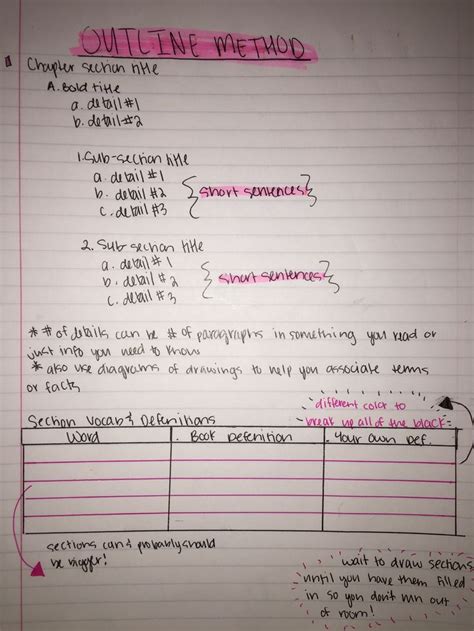 OUTLINE METHOD
Chapter section title
A. Bold title
a. detail #1
b. detail #2
1. Sub-section title
a. detail #1
b. detail #2 {short sentences}
c. detail #3
2. Sub section title
a. detail #1
b. detail #2 {short sentences}
c. detail #3
* # of details can be # of paragraphs in something you read or
just info you need to know
* also use diagrams of drawings to help you associate terms
or facts
different color to
break up all of the black:
Section Vocab & Definitions
Word Book Definition Your own Def.
sections can & probably should
be bigger!
wait to draw sections
until you have them filled
in so you don't run out
of room!